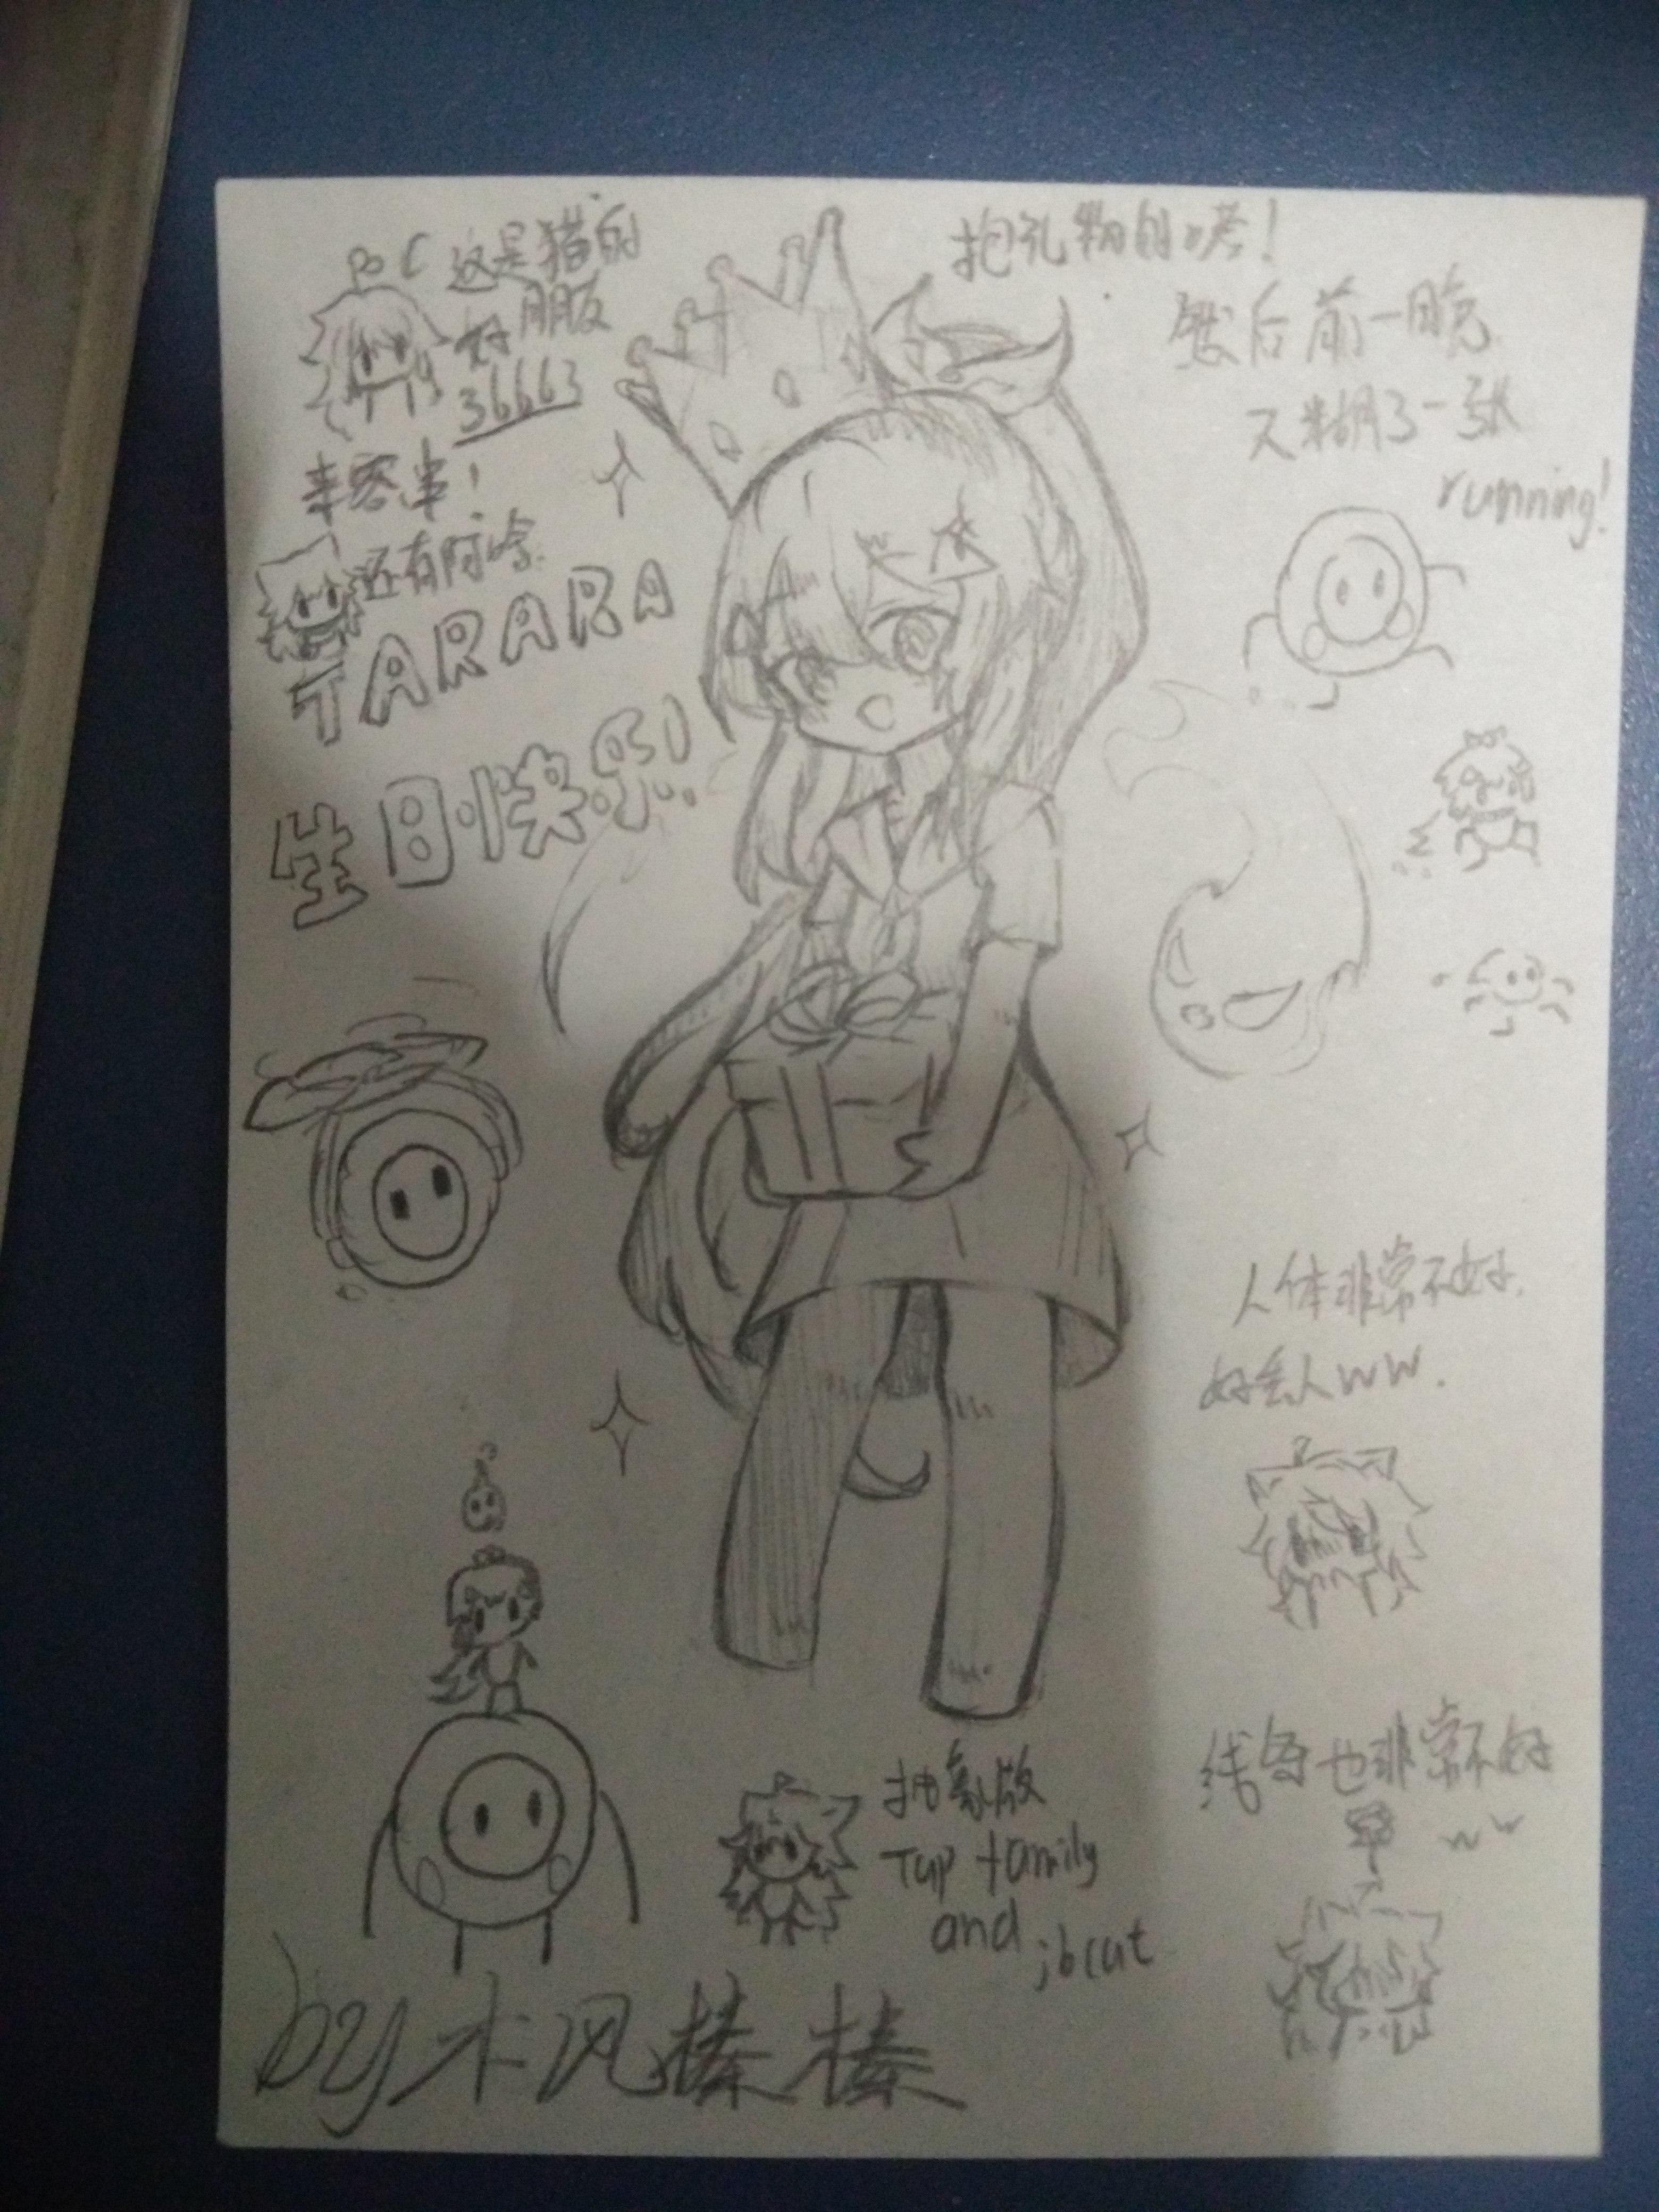 PoC 这是猫的
好朋友
36663
来客串!
还有阿喰.
TARARA
生日快乐!
抱礼物的塔!
然后前一晚
又糊了一张
running!
人体非常不好.
好丢人ww.
线条也非常不好
ww
抽象版
Tup family
and jbcut
by 木风榛榛